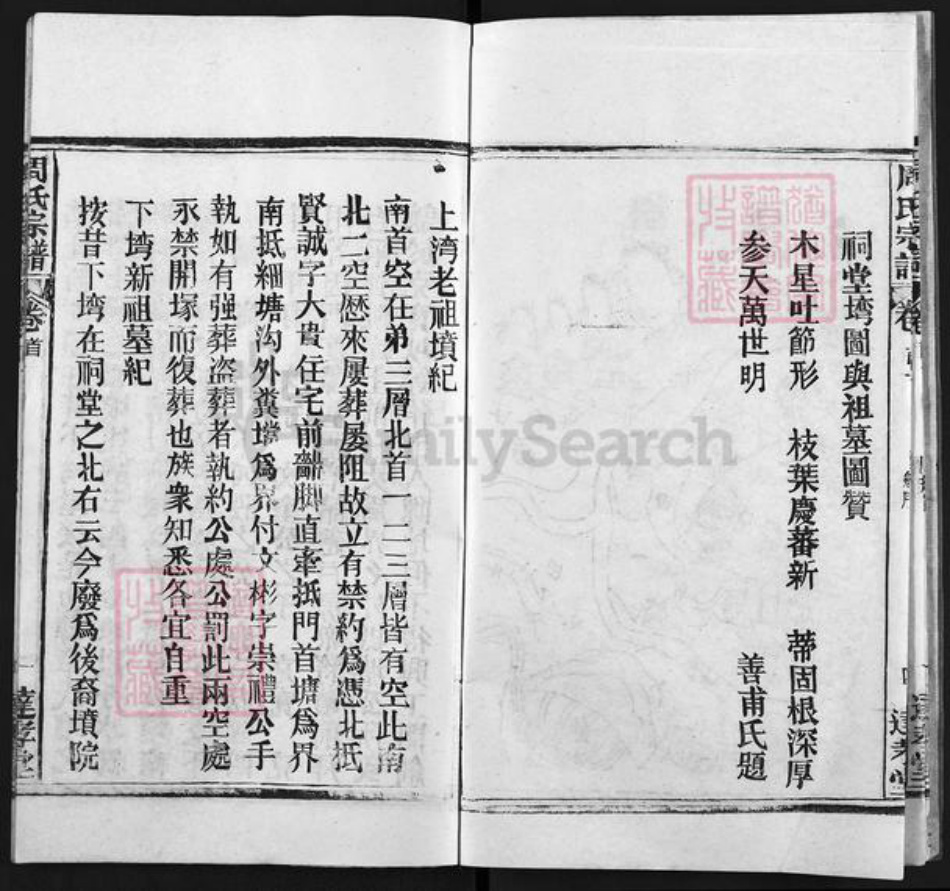 祠堂塆圖與祖墓圖贊
木星吐節形 枝葉慶蕃新 蒂固根深厚
参天萬世明 善甫氏題
上湾老祖墳紀
南首空在弟三層北首一二三層皆有空此南
北二空歷來屢葬屡阻故立有禁約爲憑北抵
賢誠字大貴住宅前齶脚直牽抵門首塘爲界
南抵細塘沟外糞壋爲界付文彬字崇禮公手
執如有强葬盗葬者執約公處公罰此兩空處
永禁開塚而復葬也族衆知悉各宜自重
下塆新祖墓紀
按昔下塆在祠堂之北右云今廢爲後裔墳院
周氏宗譜 卷首 一 達孝堂
FamilySearch